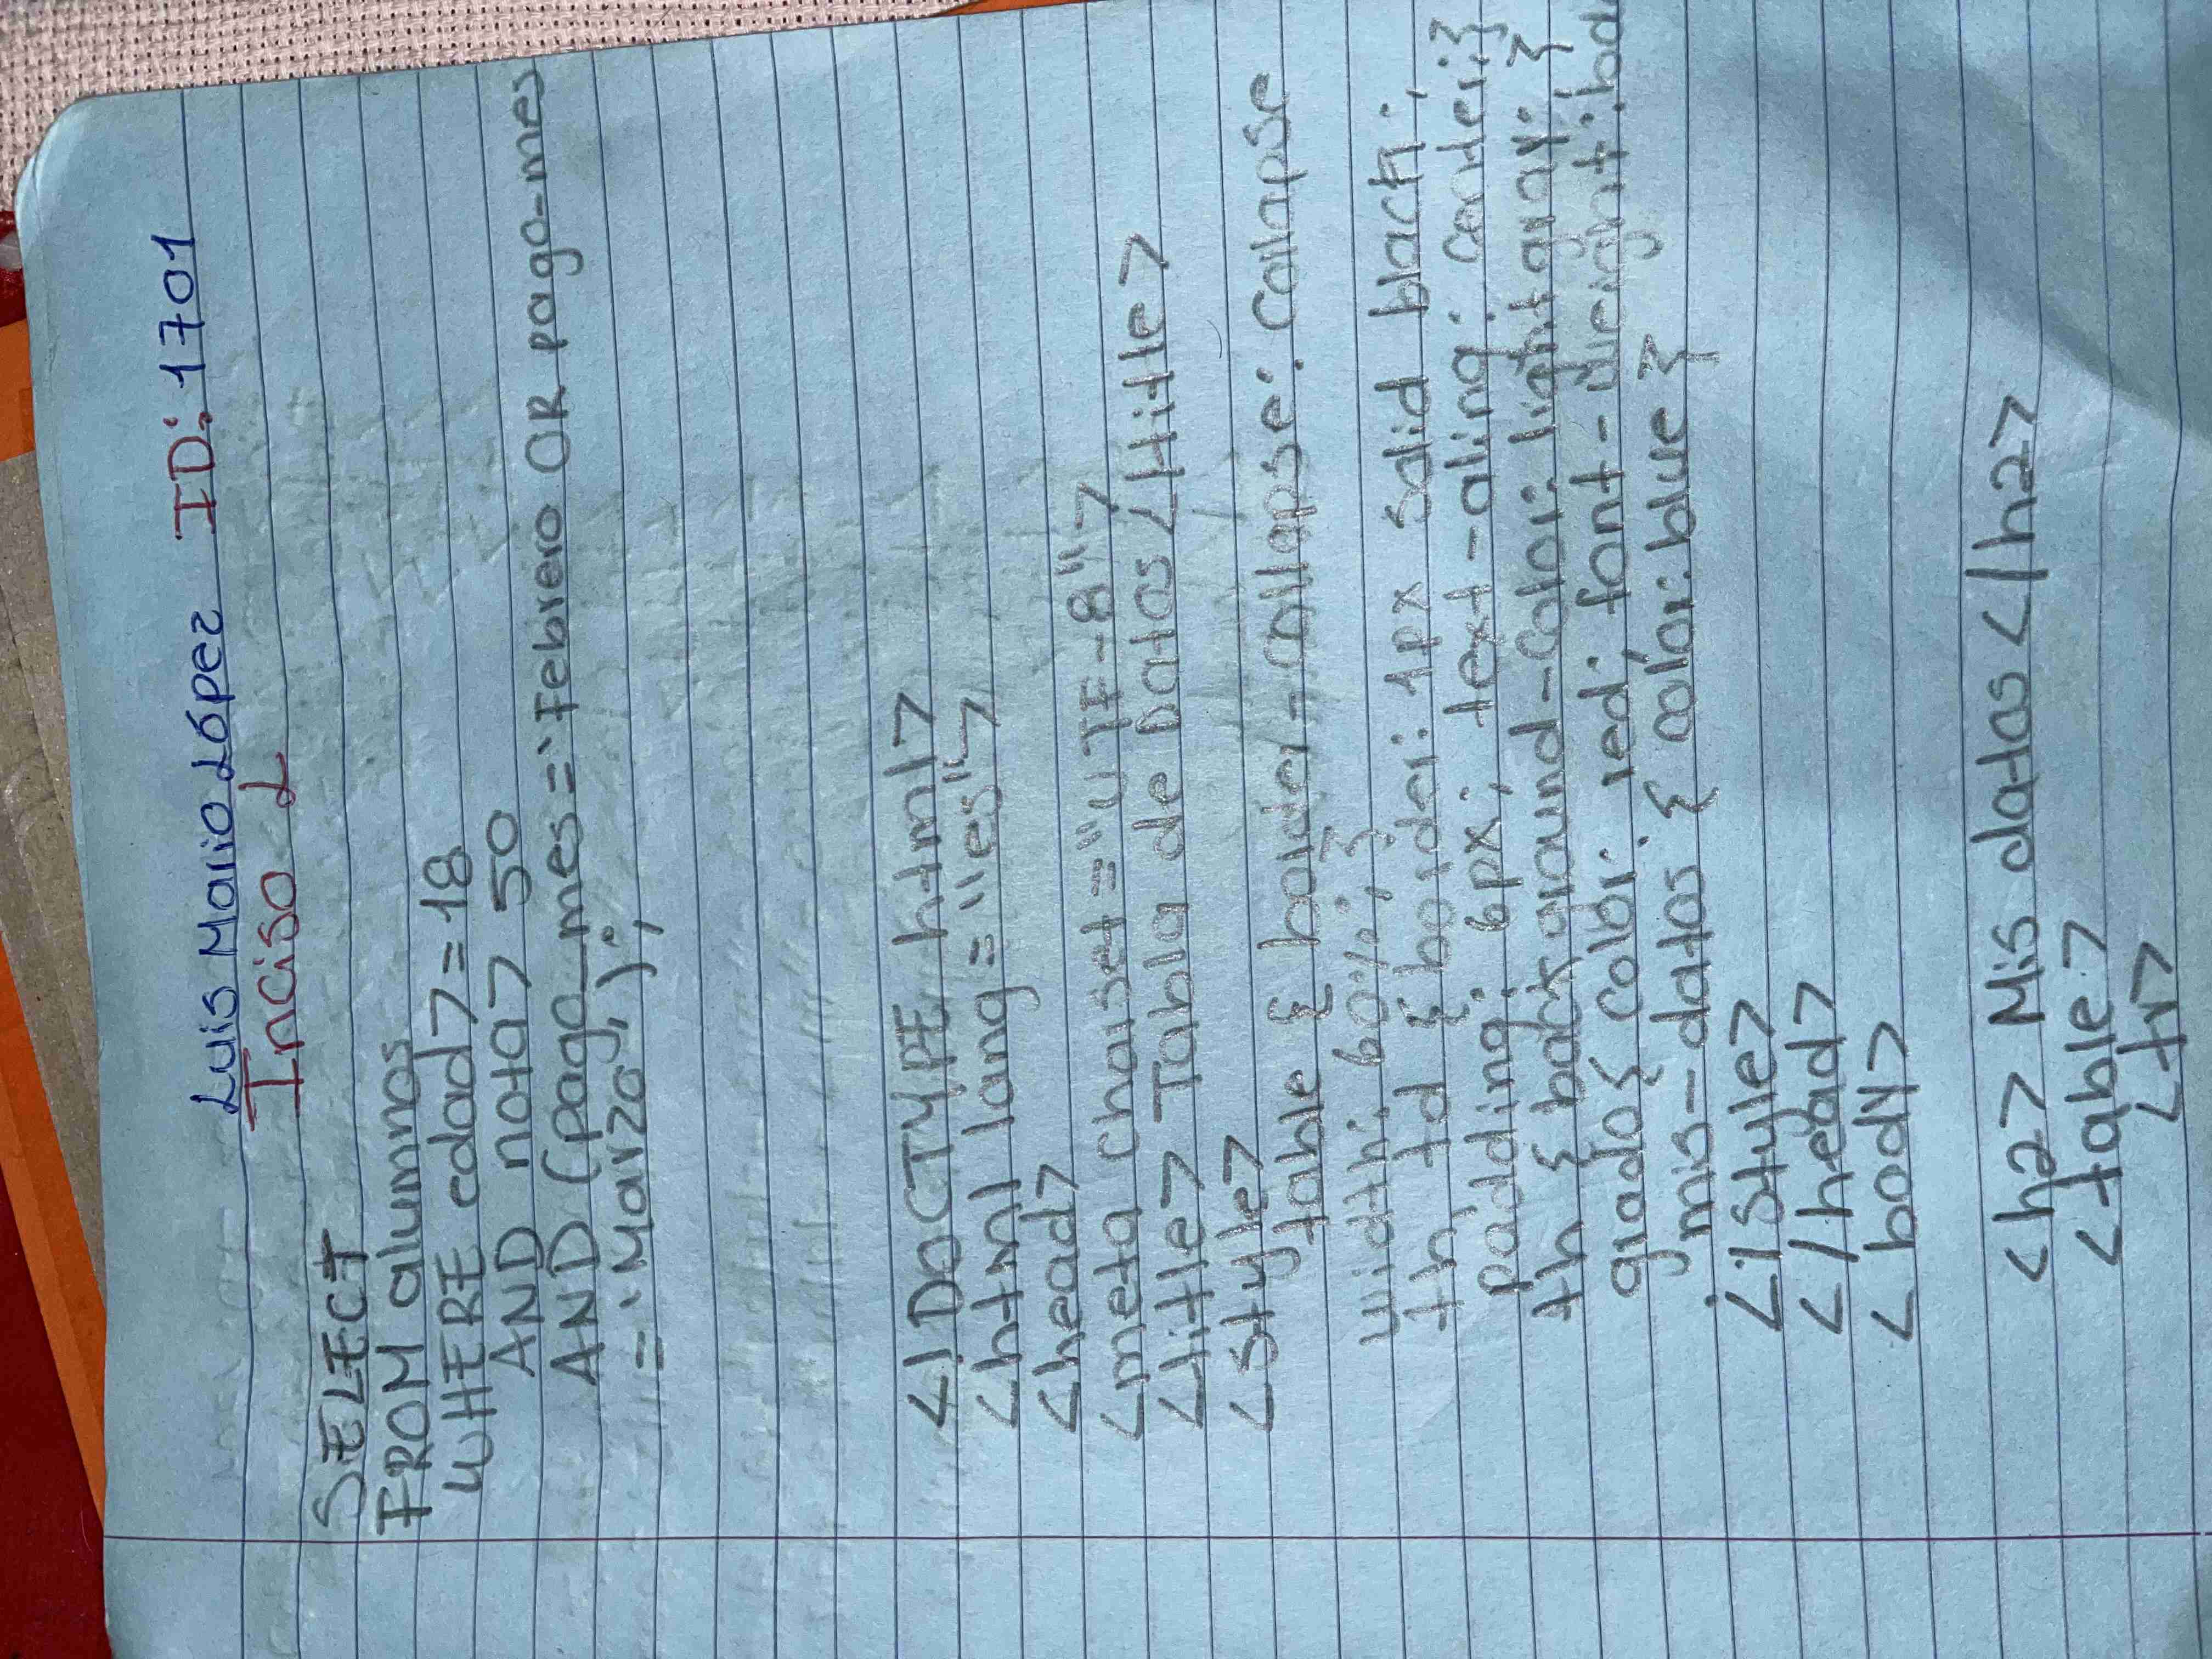 Luis Mario López ID: 1701
Inciso L
SELECT
FROM alumnos
WHERE edad >= 18
AND nota > 50
AND (pago_mes = 'Febrero OR pago-mes
= 'Marzo');
<!DOCTYPE html>
<html lang = "es">
<head>
<meta charset = "UTF-8">
<title> Tabla de Datos </title>
<style>
table { border-collapse: collapse
width: 60%; }
th td { border: 1px solid black;
padding: 6px; text-aling: center; }
th { background-color: lightgray; }
grado { color: red; font-weight: bod
.mis-datos { color: blue }
</style>
</head>
<body>
<h2> Mis datos </h2>
<table>
<tr>